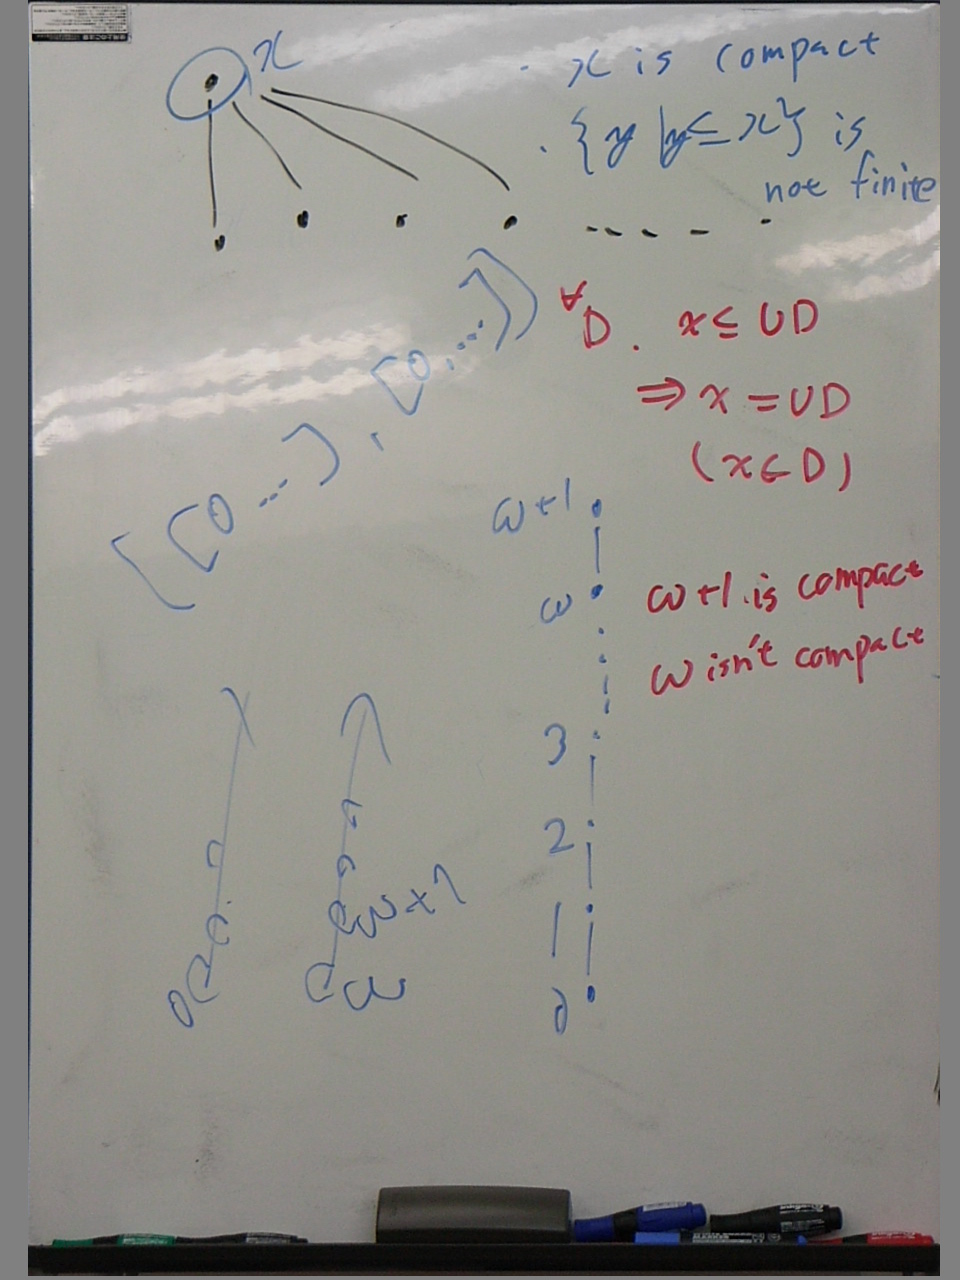 x
· x is compact
· {y | y ≤ x} is
not finite
∀D. x ≤ ∪D
⇒ x = ∪D
(x ∈ D)
[[0 ...), [0, ...))
ω+1
ω
ω+1 is compact
ω isn't compact
3
2
1
0
0
ω+1
ω